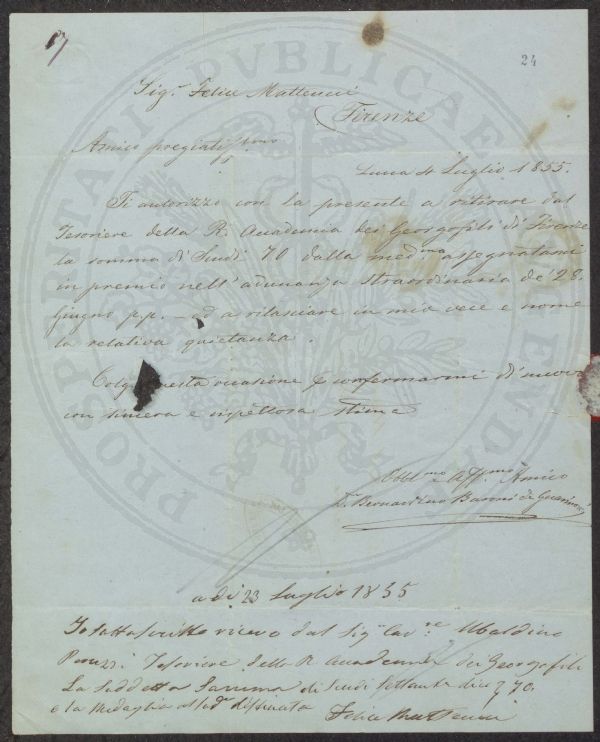 24
Sig.r Felice Matteucci
Firenze
Amico pregiatissimo
Lucca 4 Luglio 1855.
Ti autorizzo con la presente a ritirare dal
Tesoriere della R. Accademia dei Georgofili di Firenze
la somma di Scudi 70 dalla med.ma assegnatami
in premio nell'adunanza straordinaria de' 28.
Giugno p.p. — ed a rilasciare in mia vece e nome
la relativa quietanza.
Colgo questa occasione p confermarmi di nuovo
con sincera e rispettosa stima
Obbl.mo Aff.mo Amico
D. Bernardino Baroni
a di 23 Luglio 1855
Io sottoscritto ricevo dal Sig.r Cav.re Ubaldino
Peruzzi Tesoriere della R Accademia dei Georgofili
La Suddetta Somma di Scudi Settanta dico 70.
e la Medaglia
Felice Matteucci
PROSPERITATI PUBLICAE AUGENDAE